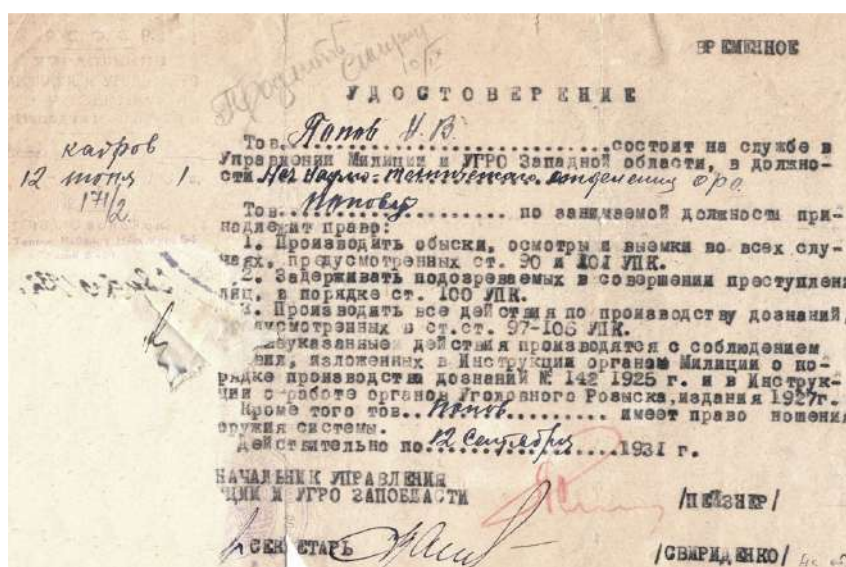 ВРЕМЕННОЕ
Продлить
10/IX
УДОСТОВЕРЕНИЕ
кадров
12 июня 1
171/2
Тов. Попов Н.В. состоит на службе в
Управлении Милиции и УГРО Западной области, в должно-
сти Нач научно-технического отделения ОРО.
Тов. Попову по занимаемой должности при-
надлежит право:
1. Производить обыски, осмотры и выемки во всех слу-
чаях, предусмотренных ст. 90 и 101 УПК.
2. Задерживать подозреваемых в совершении преступлени
лиц, в порядке ст. 100 УПК.
3. Производить все действия по производству дознаний,
дусмотренных в ст.ст. 97-106 УПК.
еуказанные действия производятся с соблюдением
вил, изложенных в Инструкции органам Милиции о по-
рядке производства дознаний № 142 1925 г. и в Инструк-
ции о работе органов Уголовного Розыска, издания 1927г.
Кроме того тов. Попов имеет право ношения
оружия системы.
Действительно по 12 Сентября 1931 г.
НАЧАЛЬНИК УПРАВЛЕНИЯ
ЦИИ И УГРО ЗАПОБЛАСТИ /ПЕЙЗНЕР/
СЕКРЕТАРЬ /СВИРИДЕНКО/